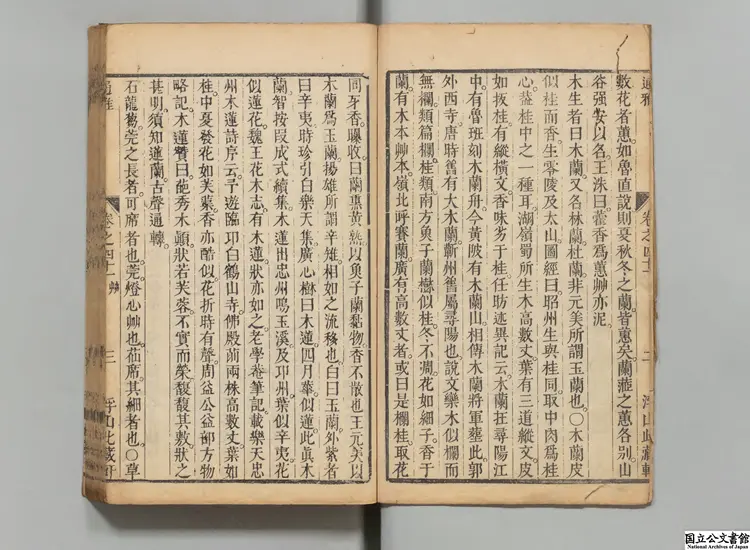 通雅
卷之四十二
二
數花者蕙如魯直說則夏秋冬之蘭皆蕙矣蘭蓀之蕙各別山
谷强安以名王洙曰藿香爲蕙艸亦泥
木生者曰木蘭又名林蘭杜蘭非元美所謂玉蘭也〇木蘭皮
似桂而香生零陵及太山圖經曰昭州生與桂同取中肉爲桂
心葢桂中之一種耳湖嶺蜀所生木高數丈葉有三道縱文皮
如板桂有縱橫文香味劣于桂任昉述異記云木蘭在尋陽江
中有魯班刻木蘭舟今黃陂有木蘭山相傳木蘭將軍塟此郭
外西寺唐時舊有大木蘭蘄州舊屬尋陽也說文欒木似欄而
無欄類篇欄桂類南方奠子蘭櫟似桂冬不凋花如細子香于
蘭有木本艸本嶺北呼賽蘭廣有高數丈者或曰是欄桂取花
同牙香曝收曰蘭蕙黃熟以奠子蘭黏物杳不散也王元美以
木蘭爲玉蘭揚雄所謂辛雉相如之流移也白曰玉蘭外紫者
曰辛夷時珍引白樂天集廣心樹曰木蓮四月華似蓮此眞木
蘭智按段成式續集木蓮出忠州鳴玉溪及卭州葉似辛夷花
似蓮花魏王花木志有木蓮狀亦如之老學巷筆記載樂天忠
州木蓮詩序云予遊臨卭白鶴山寺佛殿前兩株高數丈葉如
桂中夏發花如芙蕖香亦酷似花折時有聲周益公益部方物
略記木蓮贊曰葩秀木顚狀若芙蓉不實而榮馥馥其敷狀之
甚明須知蓮蘭古聲通轉
石龍蒭莞之長者可席者也莞燈心艸也茵席其細者也〇草
通雅
卷之四十二 艸
三
浮山此藏軒
国立公文書館
National Archives of Japan